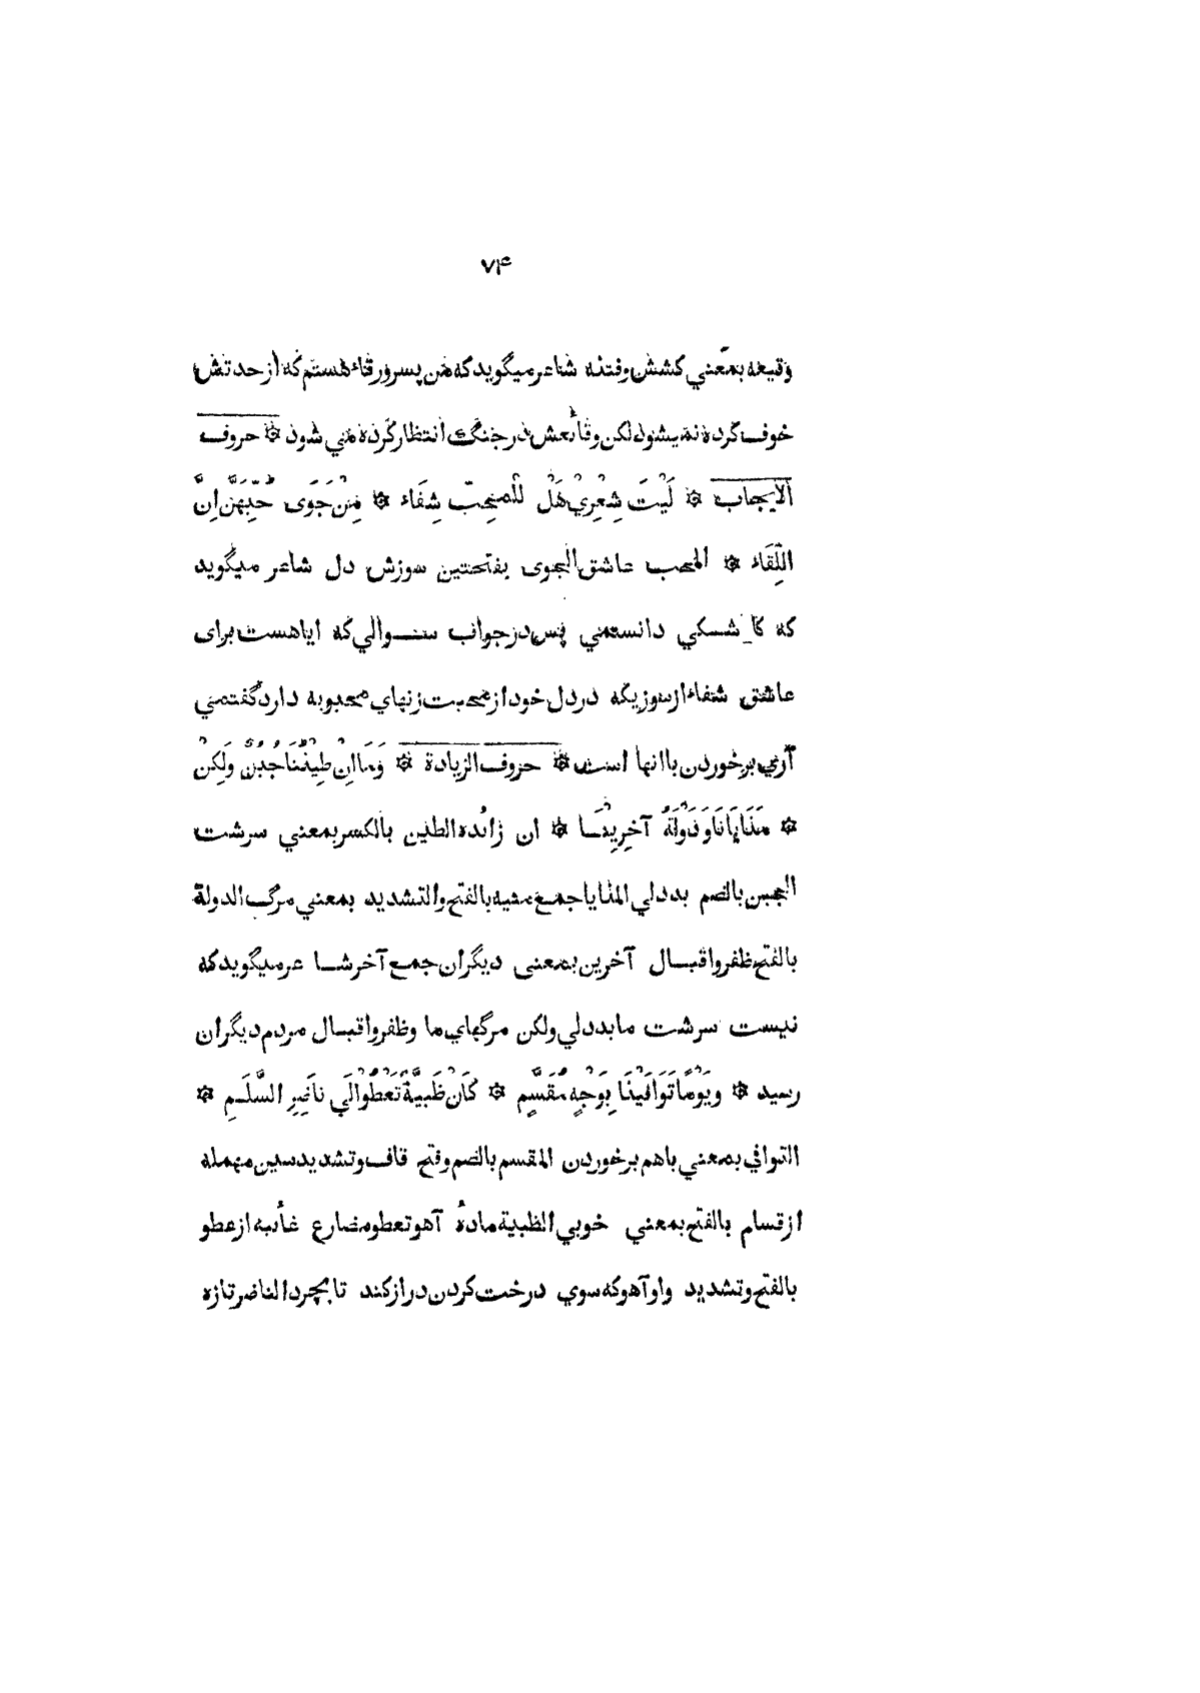 ۷۴
وقیعه بمعني کشش وفتنه شاعر میگوید که من پسرورقاء هستم که از حدتش
خوف کرده نمیشود لکن وقائعش در جنگ انتظار کرده مي شود ۞ حروف
الایجاب ۞ لَیْتَ شِعْرِيْ هَلْ لِلْمحِبّ شِفَاء ۞ مِنْ جَوَی حُبِّهِنَّ اِنَّ
اللِّقَاءَ ۞ المحب عاشق الجوی بفتحتین سوزش دل شاعر میگوید
که کاشکي دانستمي پس در جواب سوالي که ایا هست برای
عاشق شفاء از سوزیکه در دل خود از محبت زنهاي محبوبه دارد گفتمي
آري برخوردن با انها است ۞ حروف الزیادة ۞ وَمَا اِنْ طِیْنُنَا جُبْنٌ وَلَکِنْ
۞ مَنَایَانَا وَدَوْلَةُ آخِرِیْنَا ۞ ان زائده الطین بالکسر بمعني سرشت
الجبن بالضم بددلي المنایا جمع منیه بالفتح والتشدید بمعني مرگ الدولة
بالفتح ظفر واقبال آخرین بمعنی دیگران جمع آخر شاعر میگوید که
نیست سرشت ما بددلي ولکن مرگهاي ما وظفر واقبال مردم دیگران
رسید ۞ وَیَوْمًا تَوَافَیْنَا بِوَجْهٍ مُقَسَّمٍ ۞ کَانْ ظَبْیَةً تَعْطُوْ اِلَي نَاضِرِ السَّلَمِ ۞
التوافي بمعني باهم برخوردن المقسم بالضم وفتح قاف وتشدید سین مهمله
از قسام بالفتح بمعني خوبي الظبیة مادهٔ آهو تعطو مضارع غائبه از عطو
بالفتح وتشدید واو آهو که سوي درخت گردن دراز کند تا بچرد الناضر تازه